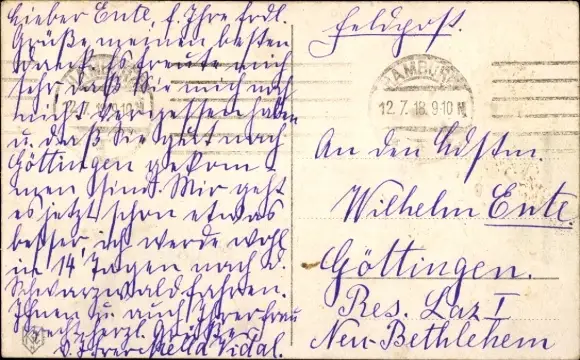 Lieber Ente, f. Ihre frdl.
Grüße meinen besten
Dank. Es freute mich
sehr, daß Sie mich noch
nicht vergessen haben
u. daß Sie gut nach
Göttingen gekom-
men sind. Mir geht
es jetzt schon etwas
besser, ich werde wohl
in 14 Tagen nach d.
Schwarzwald fahren.
Ihnen u. auch Ihrer Frau
recht herzl. Grüße
v. Ihrer Stella Vidal.
Feldpost.
HAMBURG
12.7.18.9-10 N
HAMBURG
12.7.18.9-10 N
An den
Wilhelm Ente.
Göttingen.
Res. Laz I
Neu-Bethlehem